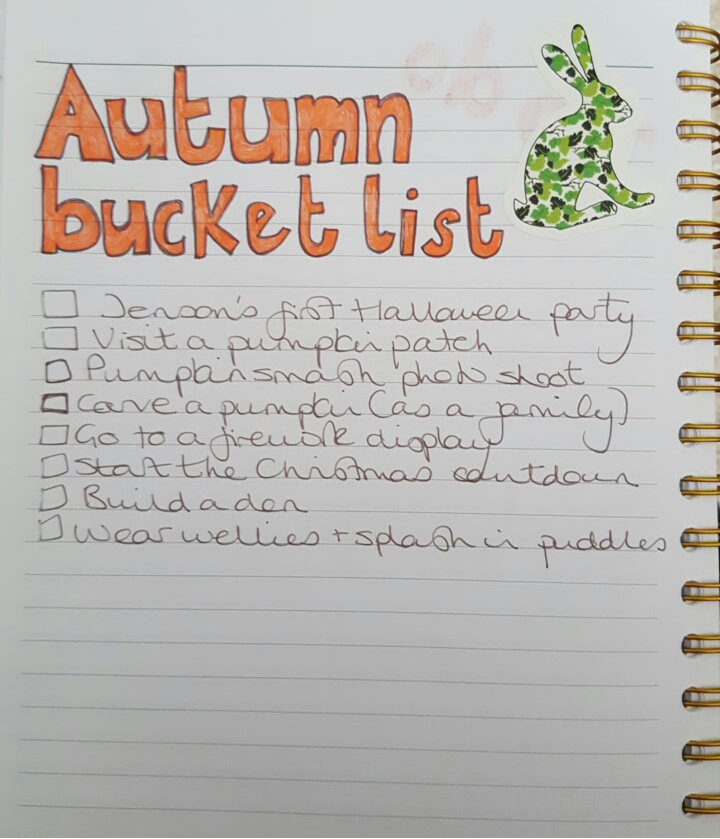 Autumn
bucket list
Jenson's first Halloween party
Visit a pumpkin patch
Pumpkin smash photo shoot
Carve a pumpkin (as a family)
Go to a firework display
Start the Christmas countdown
Build a den
Wear wellies + splash in puddles